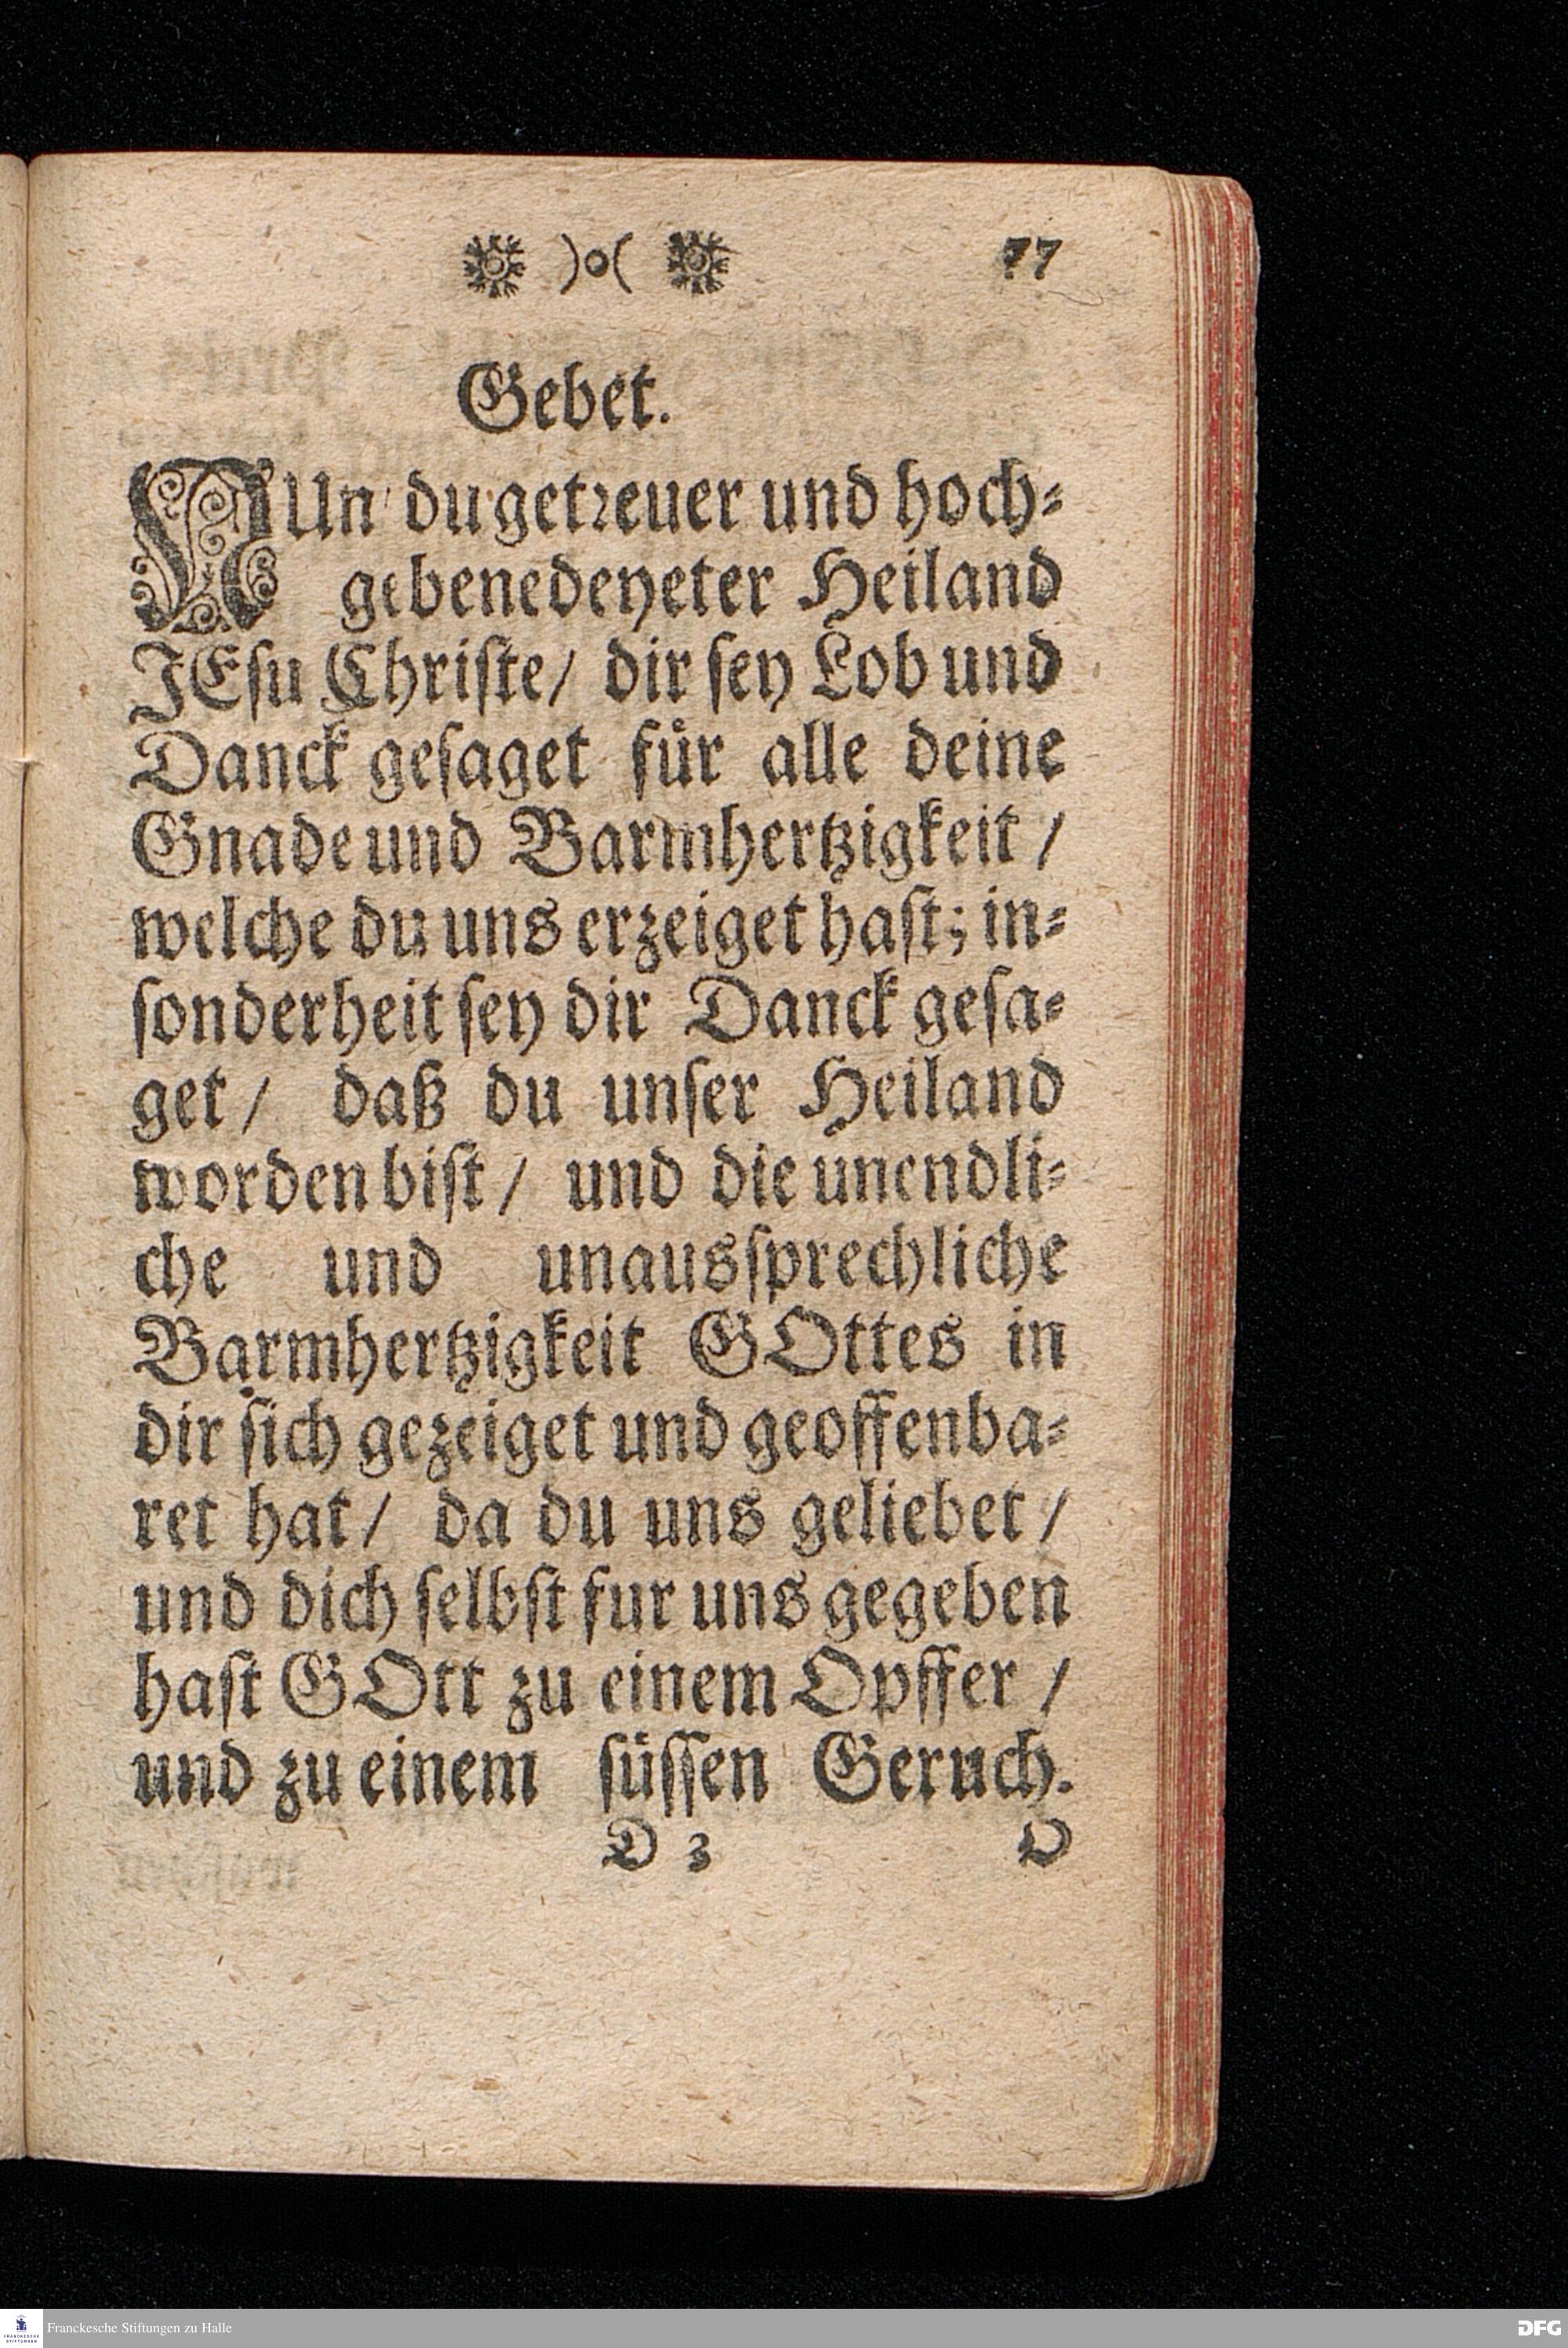 )o( 77
Gebet.
NUn du getreuer und hoch⸗
gebenedeyeter Heiland
JEsu Christe/ dir sey Lob und
Danck gesaget für alle deine
Gnade und Barmhertzigkeit /
welche du uns erzeiget hast; in⸗
sonderheit sey dir Danck gesa⸗
get / daß du unser Heiland
worden bist / und die unendli⸗
che und unaussprechliche
Barmhertzigkeit GOttes in
dir sich gezeiget und geoffenba⸗
ret hat / da du uns geliebet /
und dich selbst fur uns gegeben
hast GOtt zu einem Opffer /
und zu einem süssen Geruch.
D 3 O
Franckesche Stiftungen zu Halle
DFG